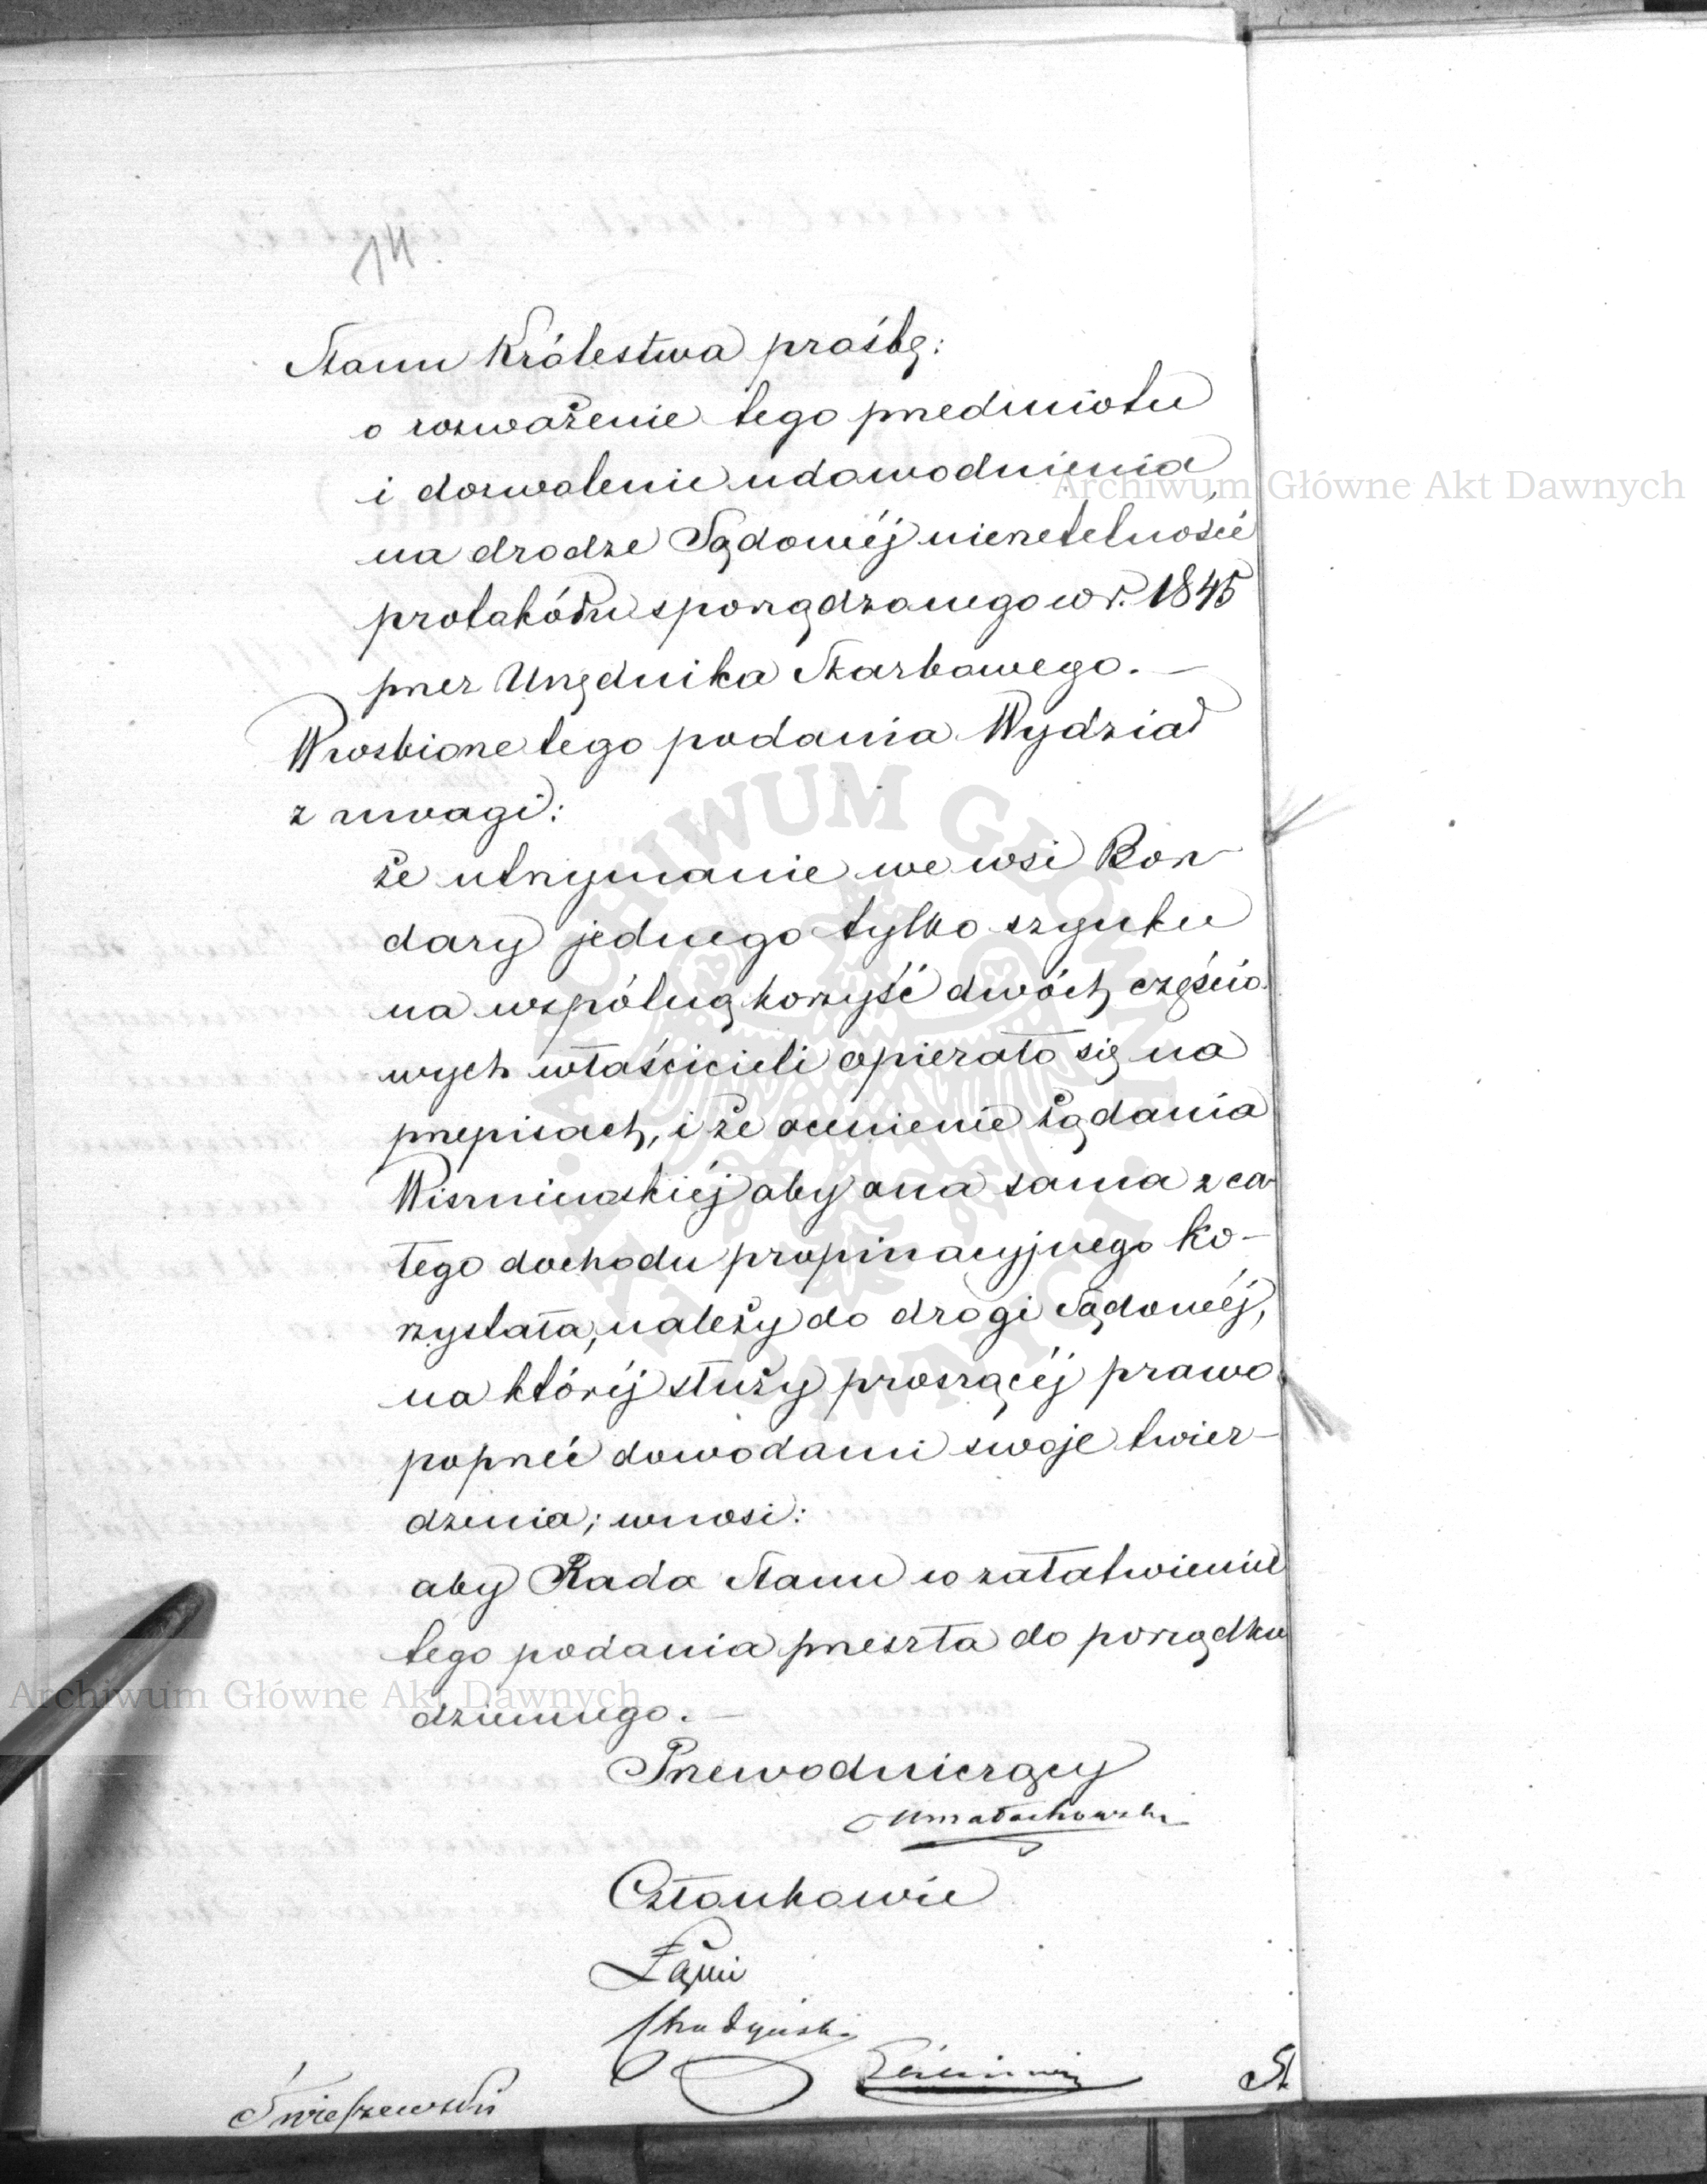 14
Stanu Królestwa prośbę:
o rozważenie tego przedmiotu
i dozwolenie udowodnienia
na drodze Sądowéj nierzetelności
protokółu sporządzonego w r. 1845
przez Urzędnika Skarbowego. —
W rozbiorze tego podania Wydział
z uwagi:
że utrzymanie we wsi Bon-
dary jednego tylko szynku
na wspólną korzyść dwóch częścio-
wych właścicieli opierało się na
przepisach, i że ocenienie żądania
Wiszniewskiéj aby ona sama z ca-
łego dochodu propinacyjnego ko-
rzystała, należy do drogi Sądowéj,
na któréj służy proszącéj prawo
poprzeć dowodami swoje twier-
dzenia; wnosi:
aby Rada Stanu w załatwieniu
tego podania przeszła do porządku
dziennego. —
Przewodniczący
Małachowski
Członkowie
Łąski
Chodyński
Świeszewski
St
Archiwum Główne Akt Dawnych
Archiwum Główne Akt Dawnych
ARCHIWUM GŁÓWNE
AKT DAWNYCH